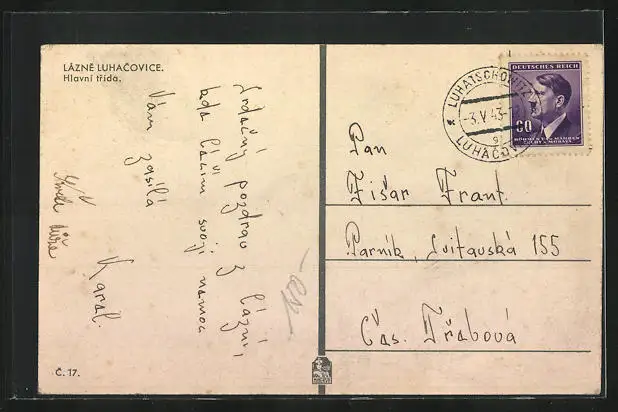 LÁZNĚ LUHAČOVICE.
Hlavní třída.
Srdečný pozdrav z lázní,
kde léčím svoji nemoc
Vám zasílá
Karel.
Č. 17.
DEUTSCHES REICH
60
BÖHMEN UND MÄHREN
ČECHY A MORAVA
LUHATSCHOWITZ
-3.V.43-
LUHAČOV
Pan
Zišar Frant.
Parník, Svitavská 155
Čes. Třebová